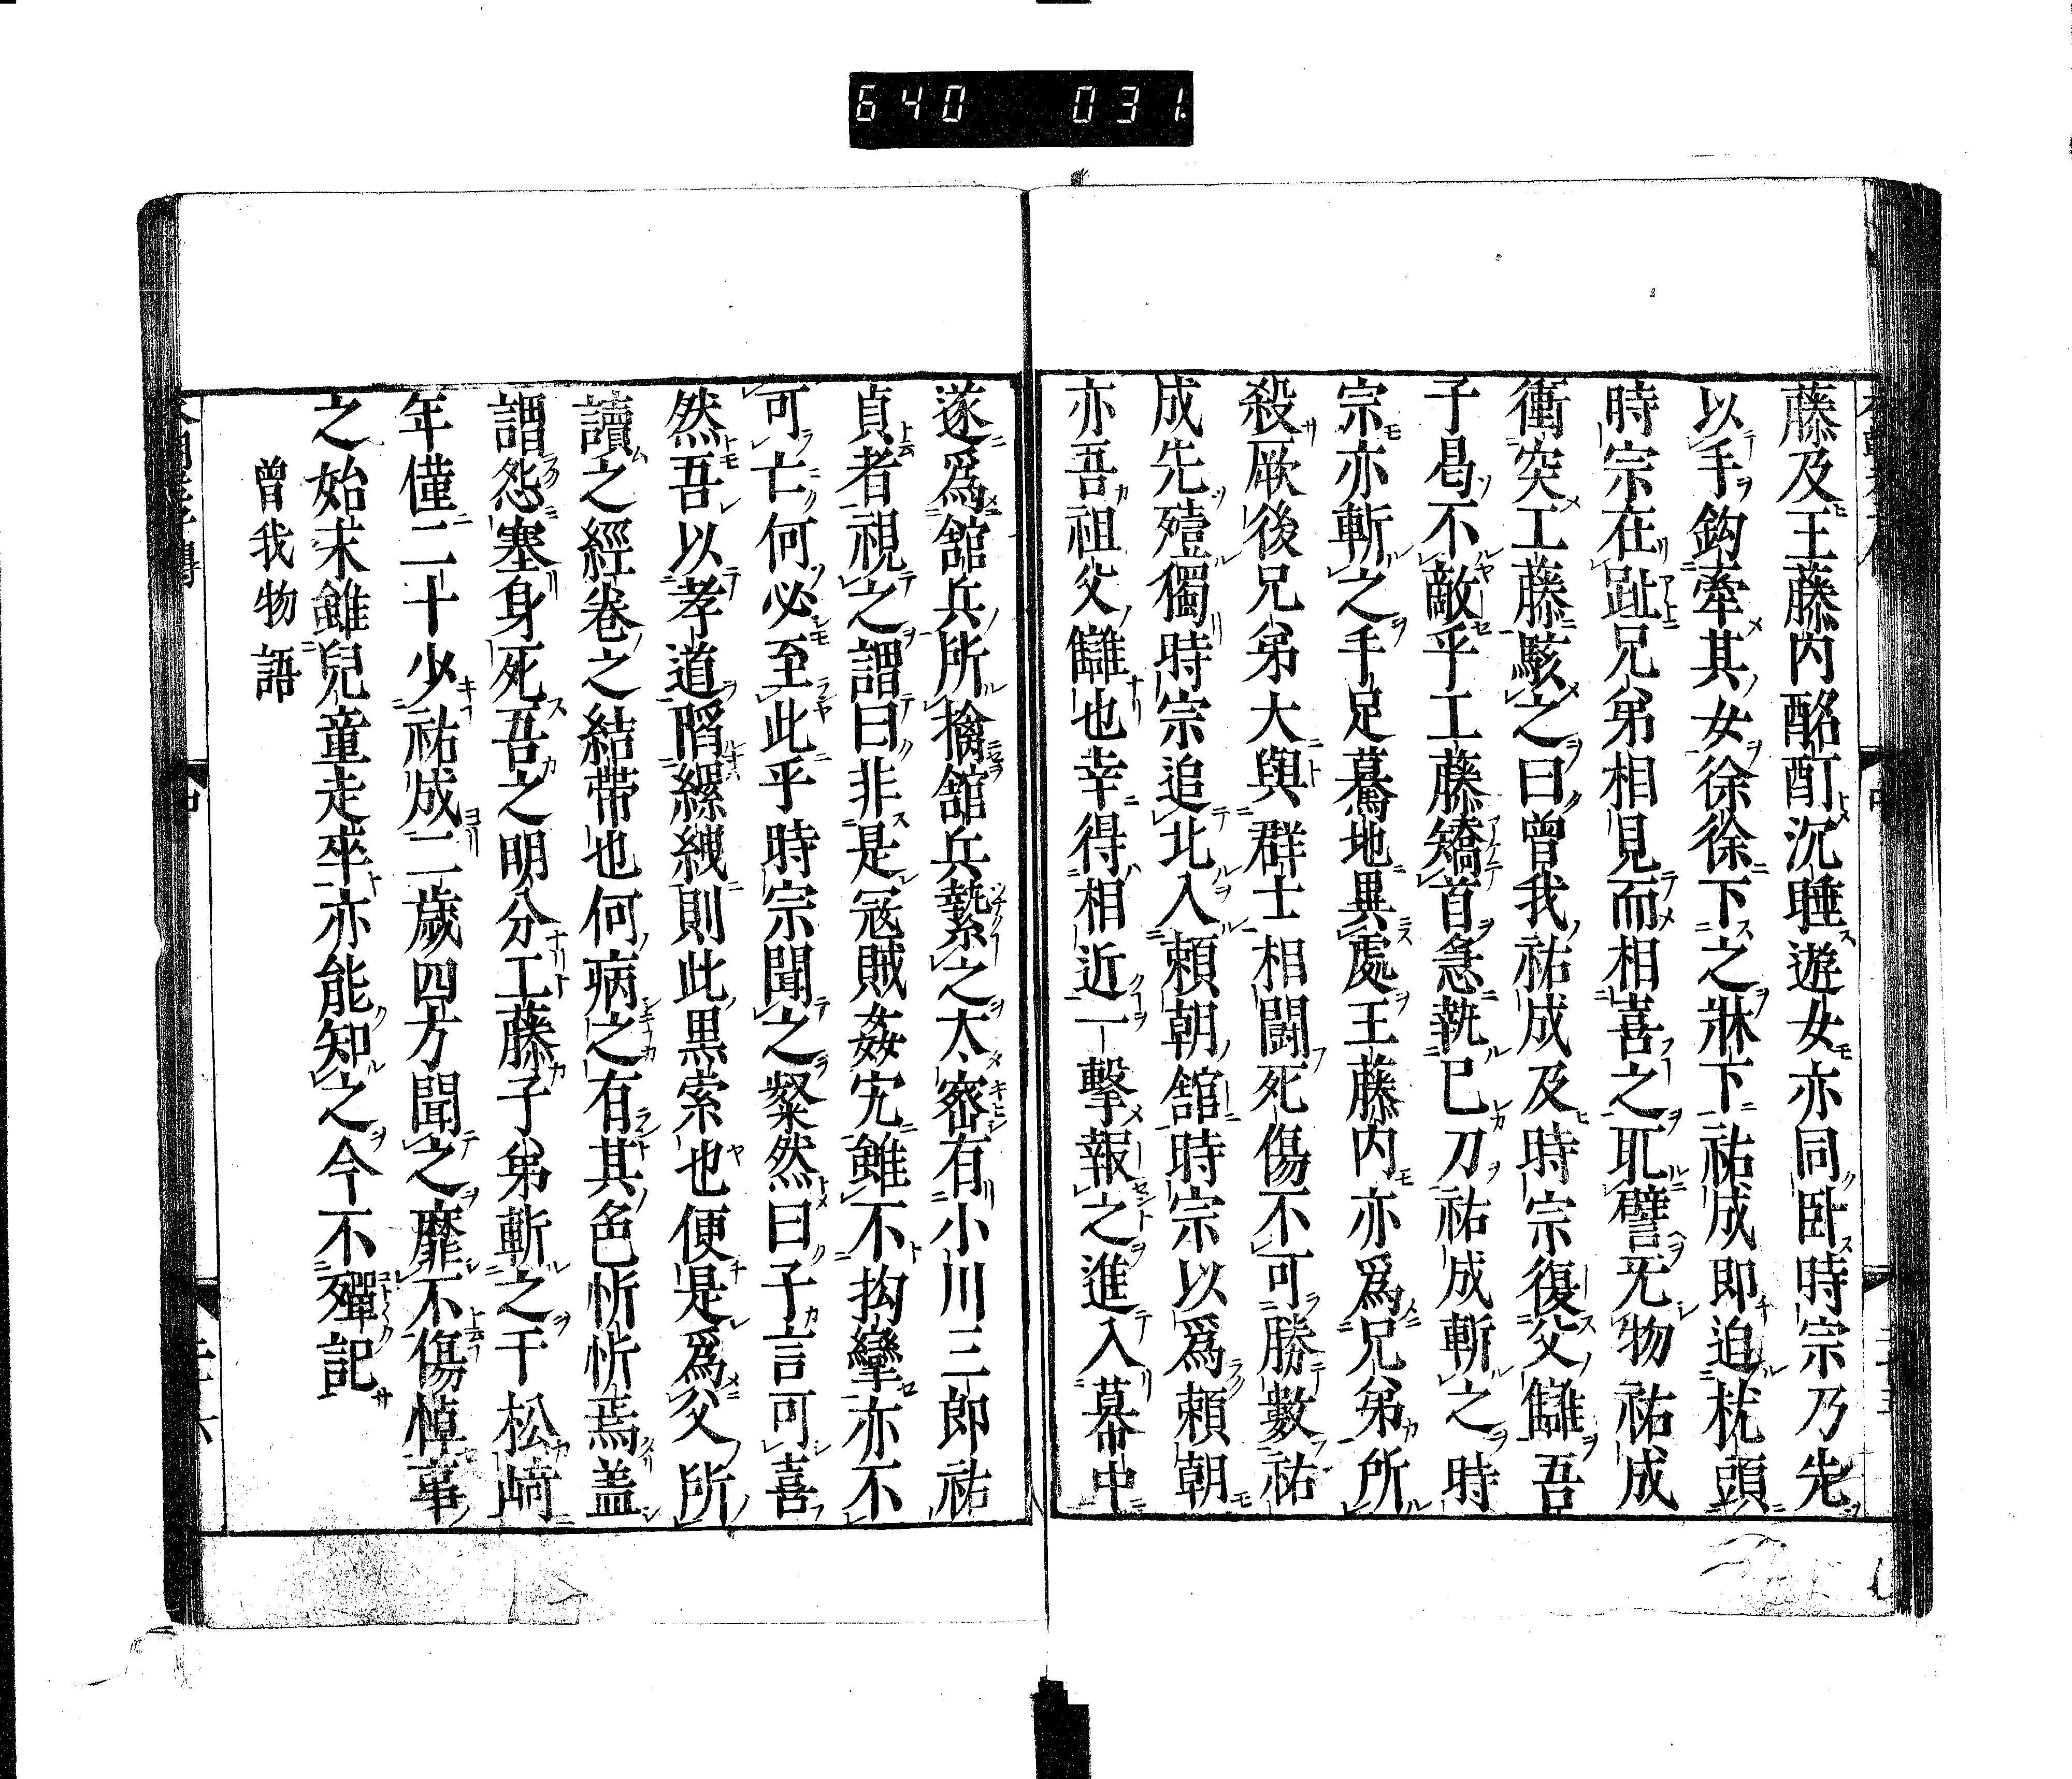 640 031.
藤及王藤内酩酊沉睡遊女亦同臥時宗乃先
以手鈎牽其女徐徐下之牀下祐成即迫枕頭
時宗在趾兄弟相見而相喜之耴譬无物祐成
衝突工藤駭之曰曾我祐成及時宗復父讎吾
子曷不敵乎工藤矯首急執已刀祐成斬之時
宗亦斬之手足驀地異處王藤内亦爲兄弟所
殺厥後兄弟大與群士相闘死傷不可勝數祐
成先殪獨時宗追北入頼朝舘時宗以爲頼朝
亦吾祖父讎也幸得相近一撃報之進入幕中
遂爲舘兵所擒舘兵縶之太宻有小川三郎祐
貞者視之謂曰非是冦賊姦宄雖不拘攣亦不
可亡何必至此乎時宗聞之粲然曰子言可喜
然吾以孝道陷縲絏則此黒索也便是爲父所
讀之經巻之結帯也何病之有其色忻忻焉盖
謂怨塞身死吾之明分工藤子弟斬之于松﨑
年僅二十少祐成二歳四方聞之靡不傷悼事
之始末雖兒童走卒亦能知之今不殫記
曾我物語